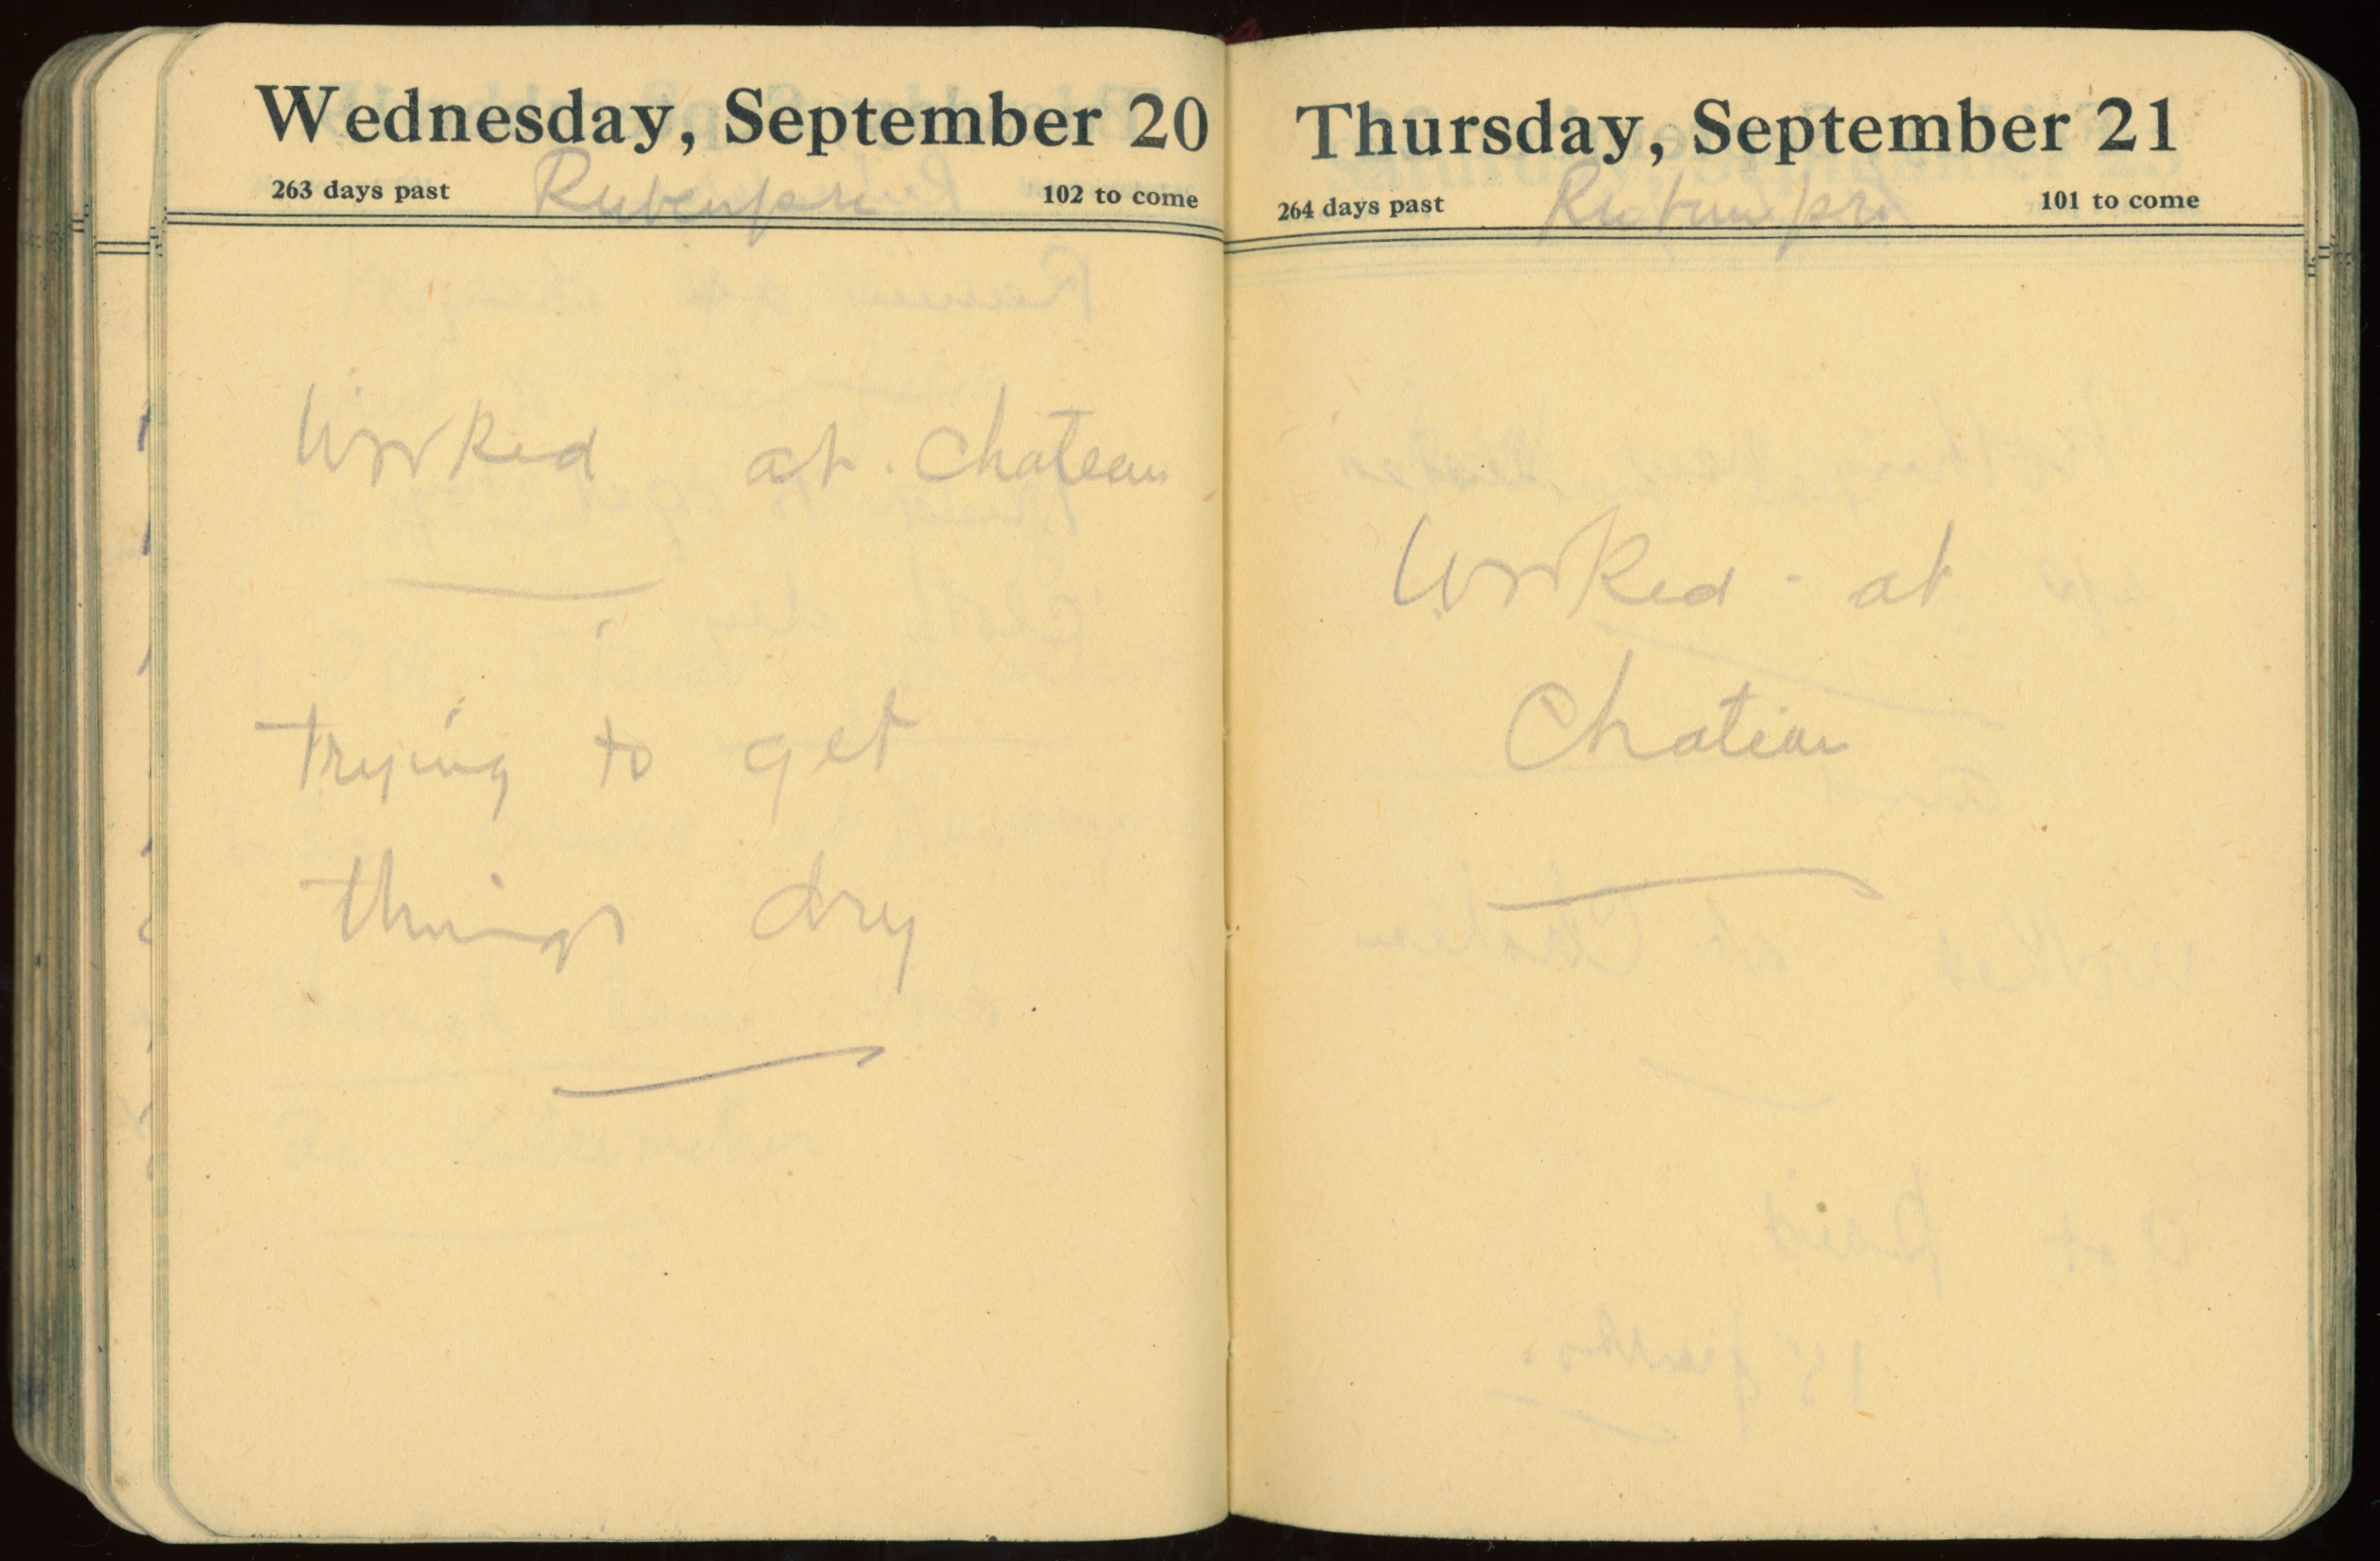 Wednesday, September 20
263 days past Rubempré 102 to come
Worked at Chateau
trying to get
things dry
Thursday, September 21
264 days past Rubempré 101 to come
Worked - at
Chateau